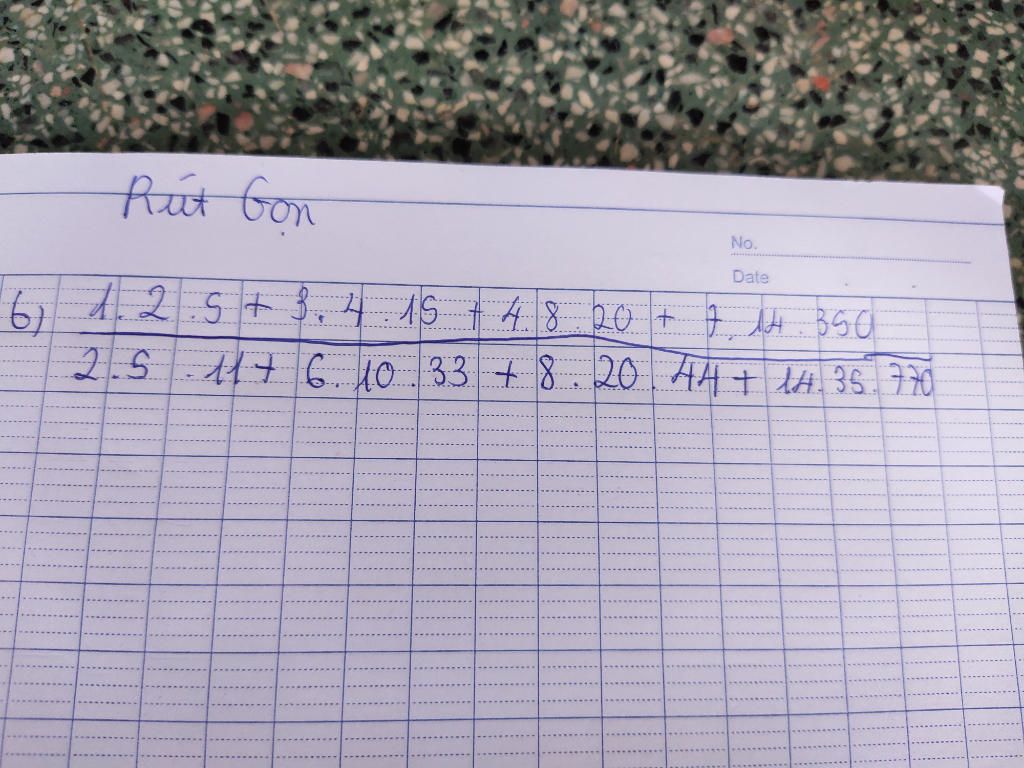 Rút Gọn
No.
Date
b) 1.2.5 + 3.4.15 + 4.8.20 + 7.14.350
2.5.11 + 6.10.33 + 8.20.44 + 14.35.770